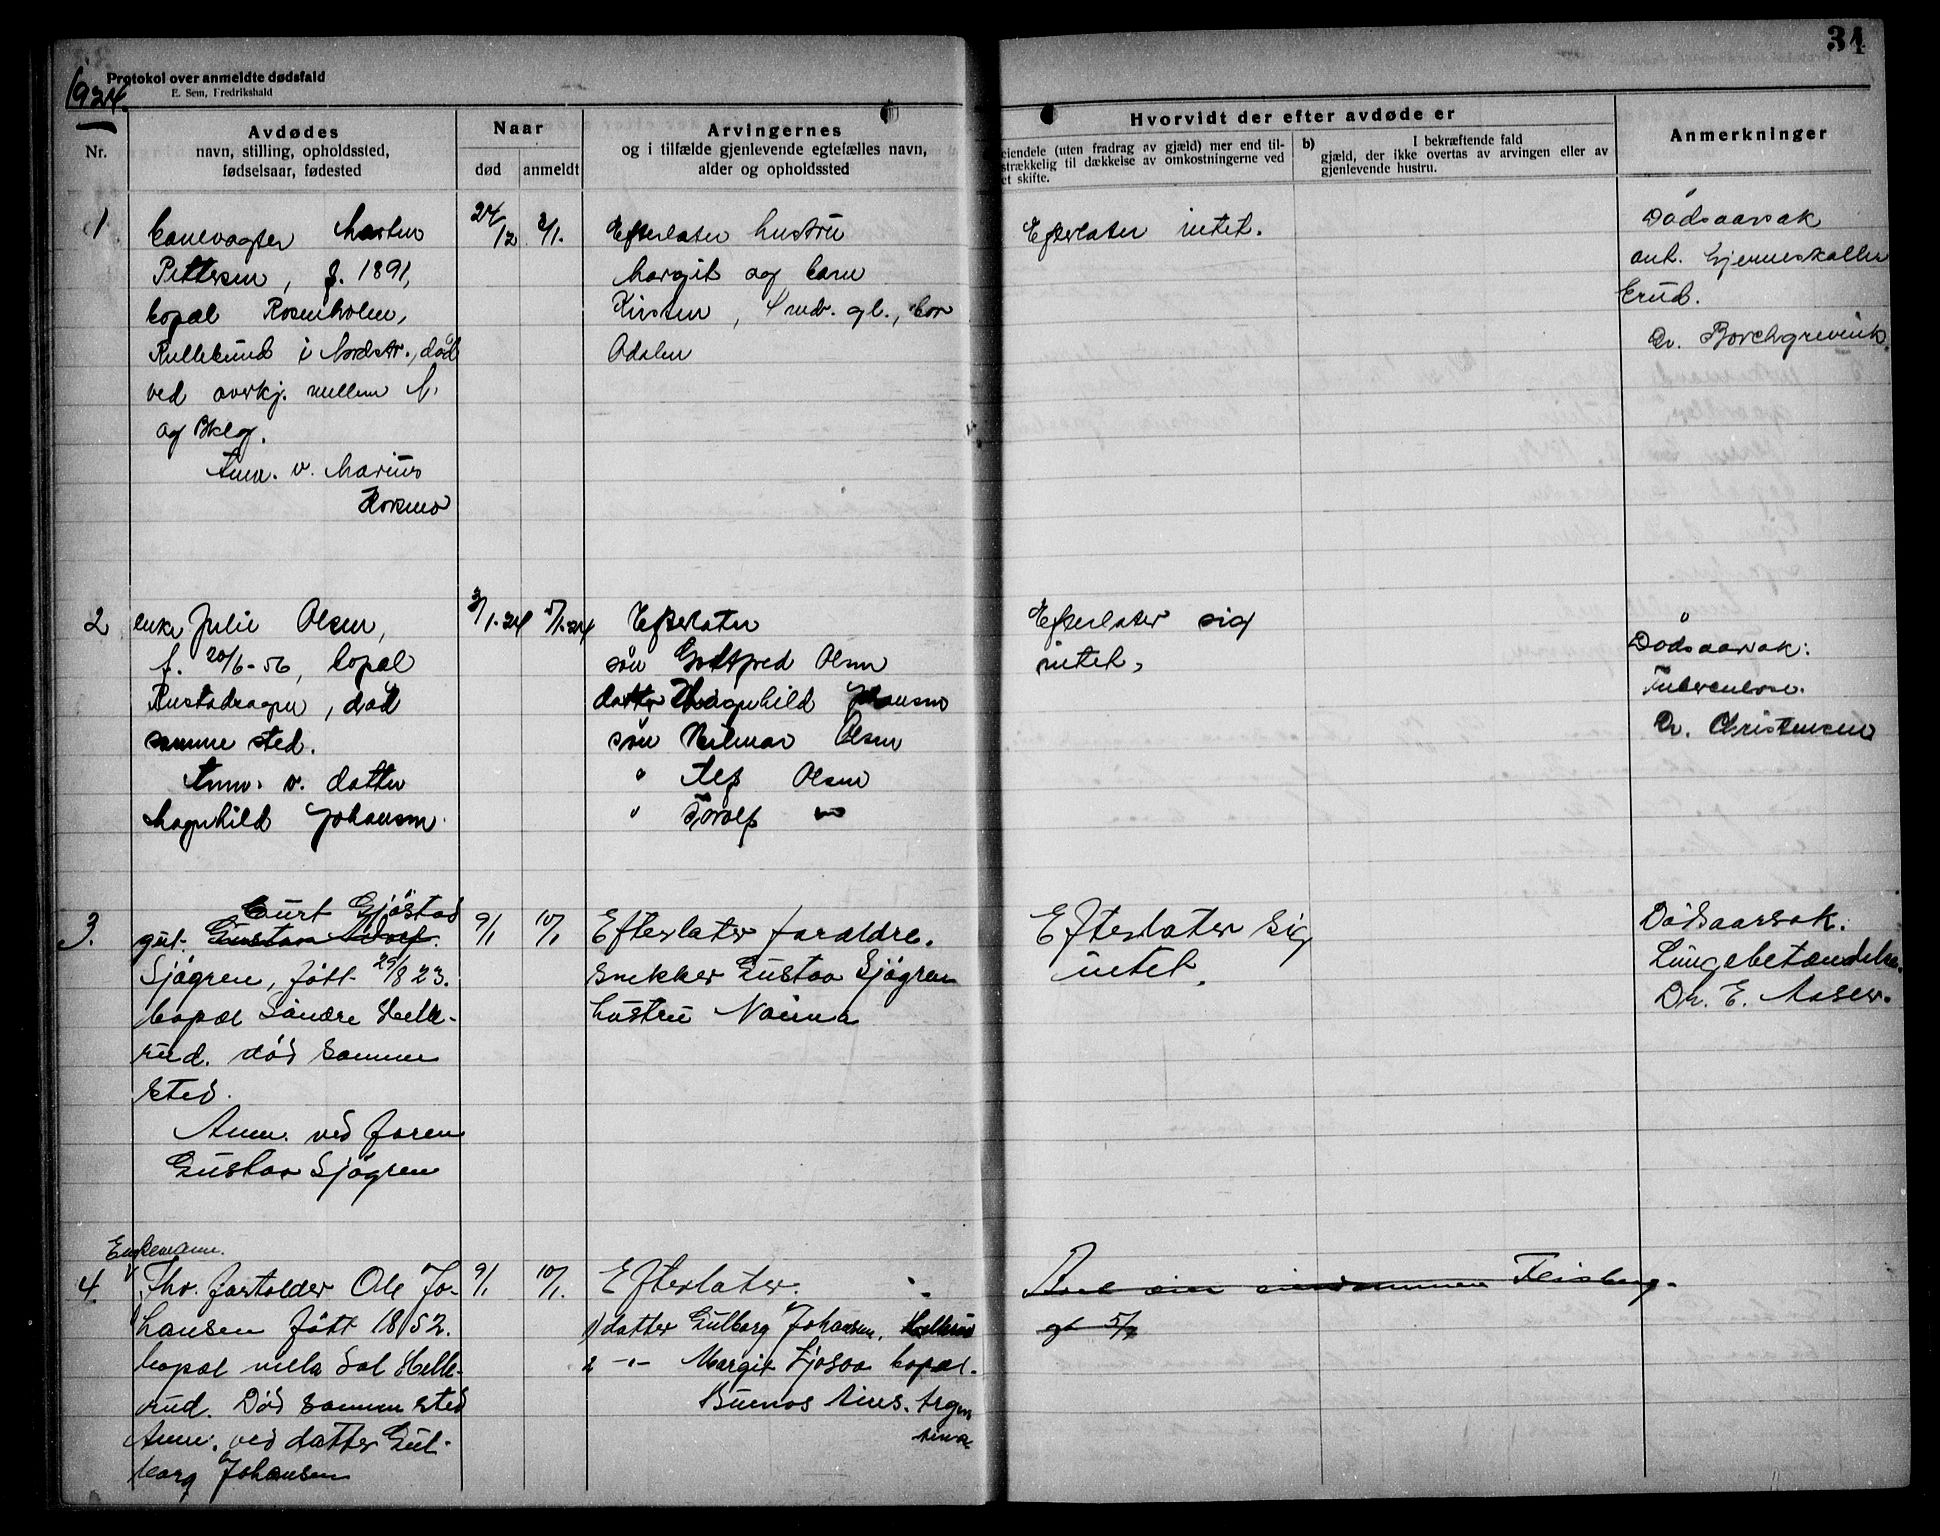 34
Protokol over anmeldte dødsfald
E. Sem, Fredrikshald
1924.
Nr.
Avdødes
navn, stilling, opholdssted,
fødselsaar, fødested
Naar
død
anmeldt
Arvingernes
og i tilfælde gjenlevende egtefælles navn,
alder og opholdssted
Hvorvidt der efter avdøde er
eiendele (uten fradrag av gjæld) mer end til-
strækkelig til dækkelse av omkostningerne ved
et skifte.
b)
I bekræftende fald
gjæld, der ikke overtas av arvingen eller av
gjenlevende hustru.
Anmerkninger
1
Banevogter Martin
Pettersen, f. 1891,
bopæl Rosenholm,
i Nordstr., død
ved overkj. mellem
og
Anm. v. Marius
24/12
2/1.
Efterlater hustru
Margit og barn
Kirsten, gl., bor
Odalen
Efterlater intet.
Dødsaarsak
ant. Hjerneskallen
brud.
Dr. Borchgrevink.
2
enke Julie Olsen,
f. 20/6-56, bopæl
død
samme sted.
Anm. v. datter
Magnhild Johansen.
3/1.24
5/1.24
Efterlater
søn Gottfred Olsen
datter Magnhild Johansen
søn Hilmar Olsen
" Alf Olsen
" Torolf "
Efterlater sig
intet,
Dødsaarsak:
Tuberculose.
Dr. Christensen
3.
Curt Gjøstad
gut. Gustav Adolf.
Sjögren, født 29/8 23.
bopæl Søndre Helle-
rud. død samme
sted.
Anm. ved faren
Gustav Sjögren
9/1
10/1
Efterlater foræeldre.
snekker Gustav Sjögren
hustru Naima
Efterlater sig
intet.
Dødsaarsak.
Lungebetændelse.
Dr. E. Aaser.
Enkemann.
4.
Fhv. forvalder Ole Jo-
hansen født 1852.
bopæl villa Sol Helle-
rud. Død samme sted
Anm. ved datter Gul-
borg Johansen
9/1.
10/1.
Efterlater.
1) datter Gulborg Johansen, Hellerud
2 -"- Margit bopæl.
Buenos Aires. Argen
tina
Flisberg.